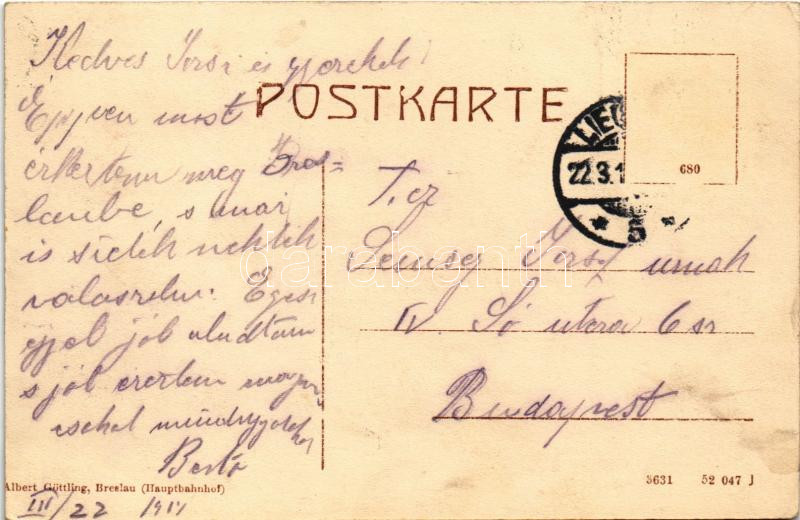 Kedves és gyerekek!
Éppen most
POSTKARTE
érkeztem meg Bres=
lauba, s már
is sietek nektek
válaszolni. Egész
éjjel jól aludtam
s jól érzem magam
csókol mindnyájatokat
Bertó
LIEG
22.3.1
* 5 *
680
T. cz
urnak
IV. Só utcza 6 sz
Budapest
darabanth
Albert Göttling, Breslau (Hauptbahnhof)
3631 52 047 J
III/22 1911